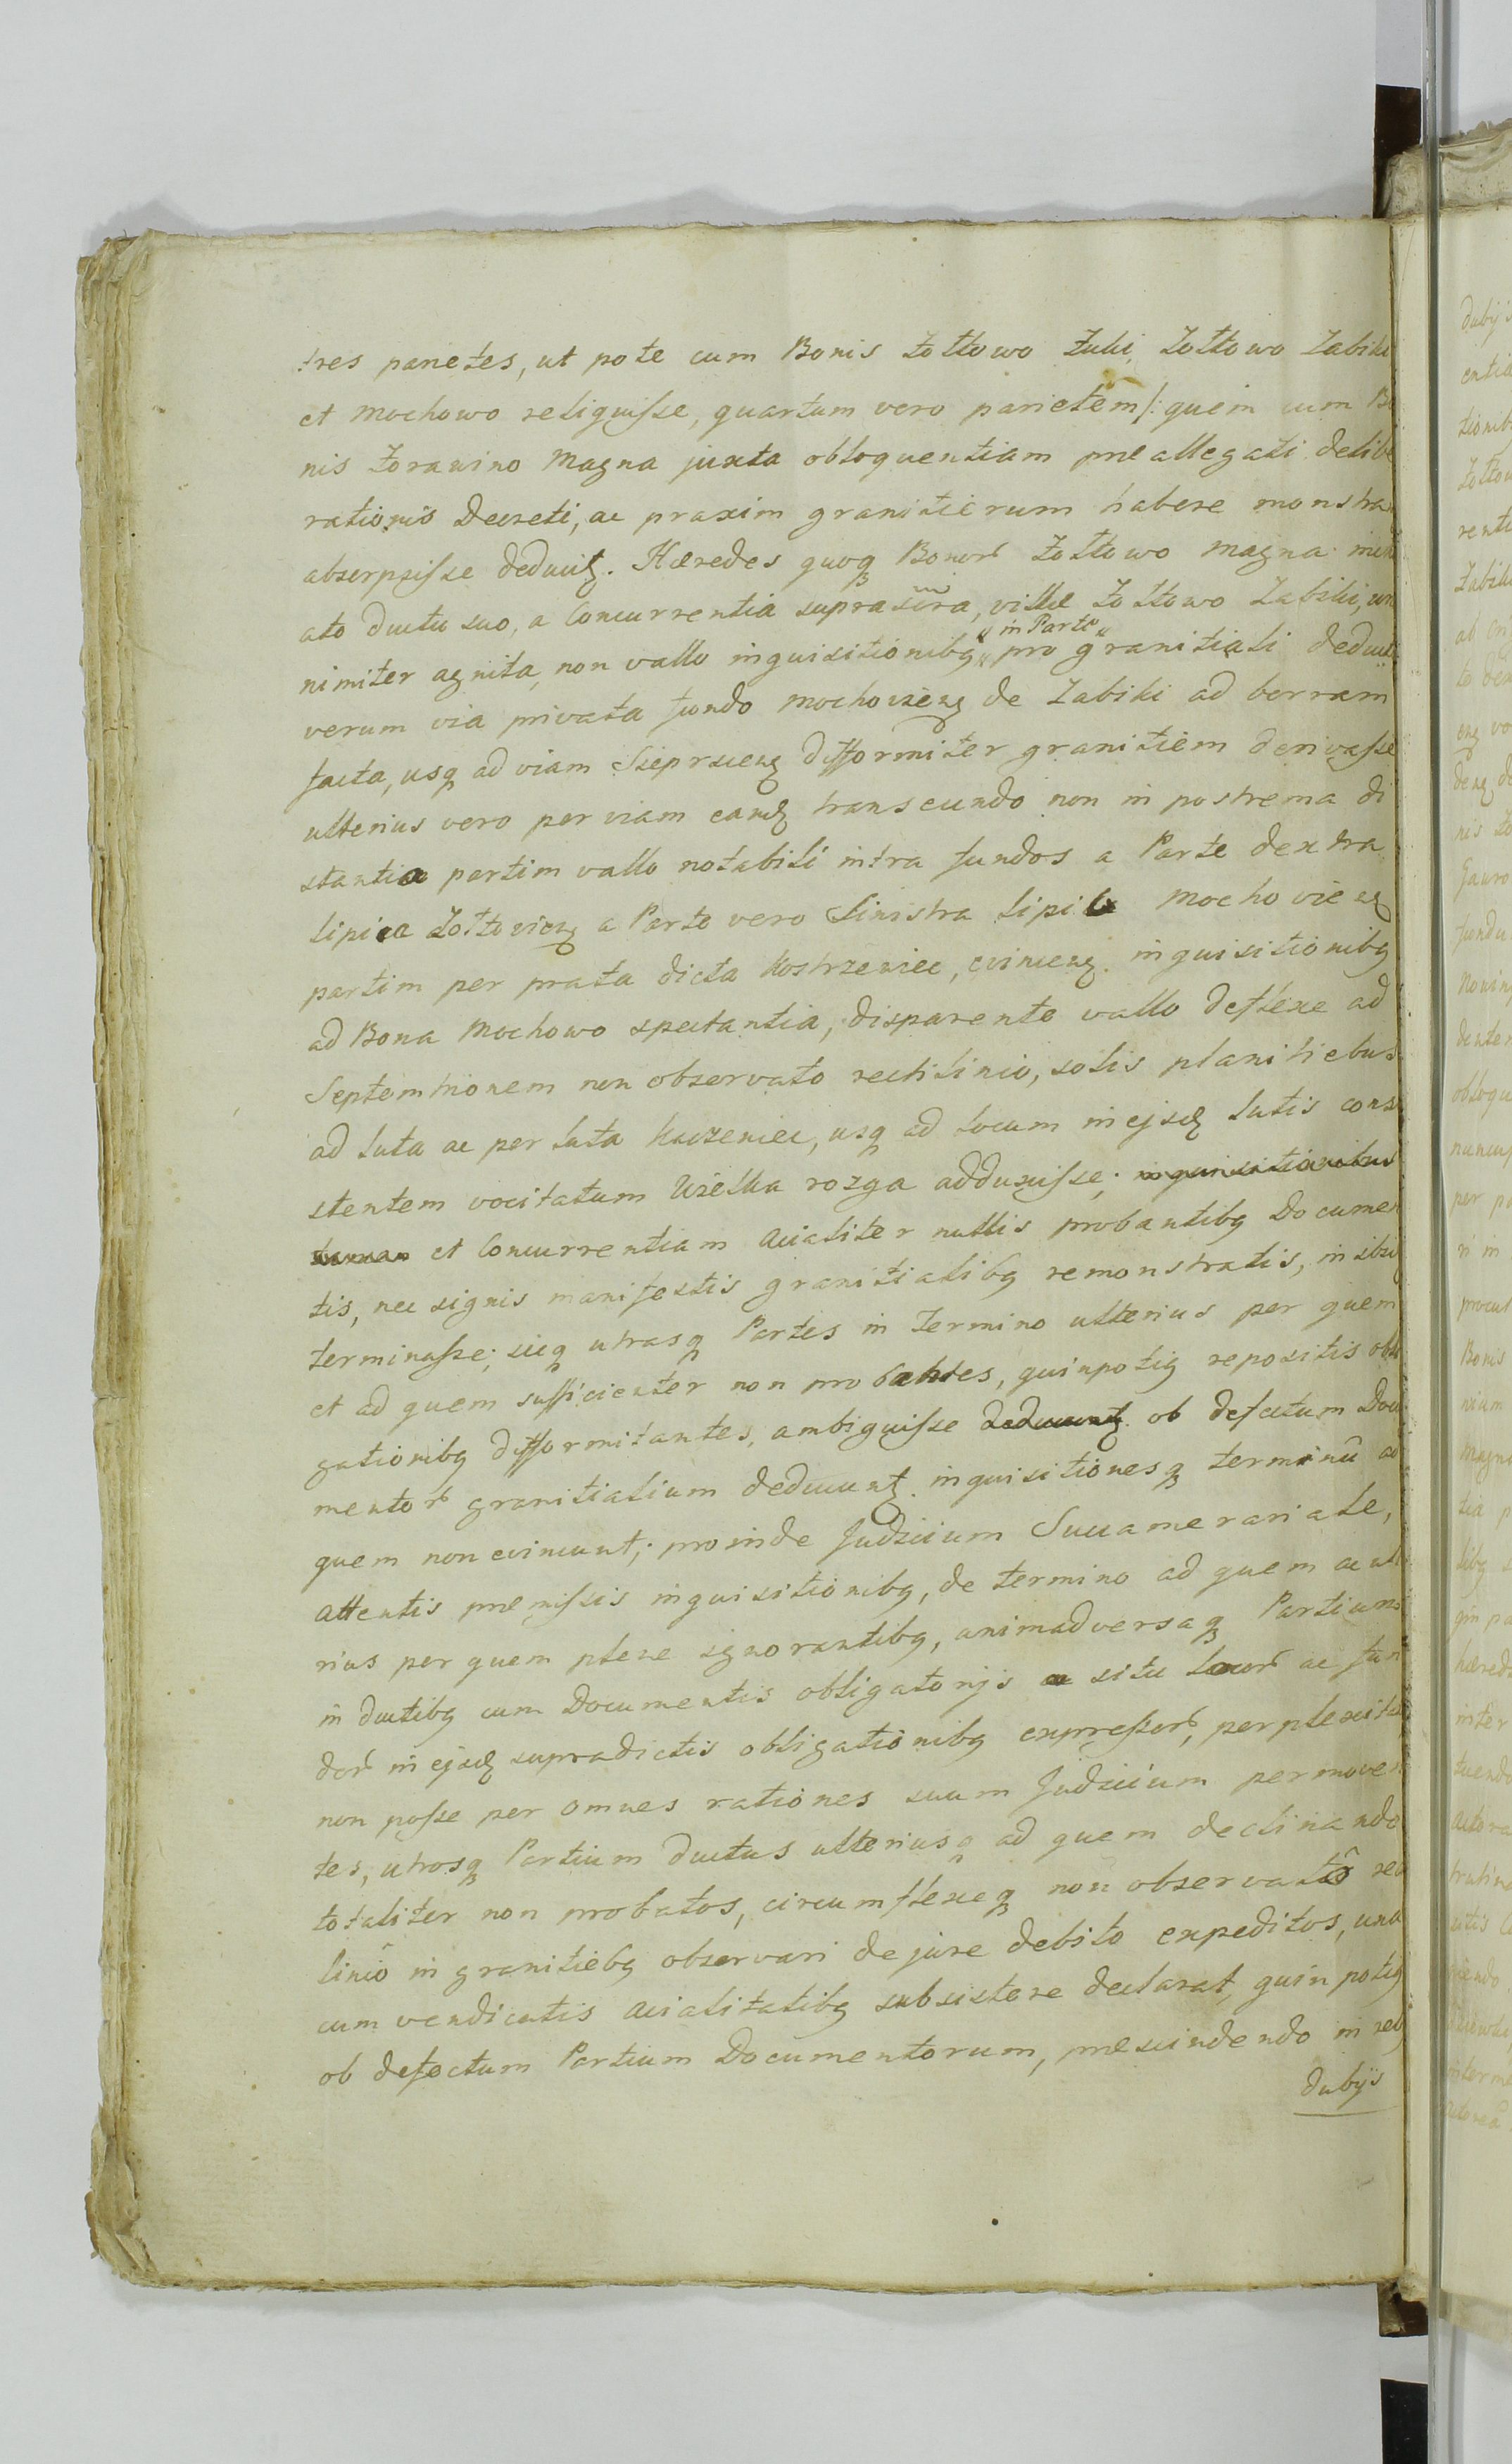 tres parietes, ut pote cum Bonis Zołtowo Żuki, Zołtowo Zabiki
et Mochowo reliquisse, quartum vero parietem /: quem cum Bo
nis Żorawino Magna juxta obloquentiam præallegati delibe
rationis Decreti, ac praxim granitierum habere monstra
absorpsisse deducit. Hæredes quoq Bonor Zołtowo Magna
ato ductu suo, a Concurrentia suprascira, villæ Zołtowo Zabiki,
nimiter agnita, non vallo inquisitionibg "in Parte" pro granitiali
verum via privata fundo Mochovien de Zabiki ad borram
facta, usq ad viam Sieprcien difformiter granitiem derivasse
ulterius vero per viam eand transeundo non in postrema di
stantia partim vallo notabili intra fundos a Parte dextra
Lipica Zołtovien a Parte vero Sinistra Lipica Mochovien
partim per prata dicta Kostrzewiec, evincen inquisitionibg
ad Bona Mochowo spectantia, disparente vallo deflexe ad
Septemtrionem non observato rectilinio, solis planitiebus
ad luta ac per luta Kaczeniec, usq ad locum in ejsd lutis consi
stentem vocitatum Wielka rozga adduxisse; inquisitionibus
et Concurrentiam Acialiter nullis probantibg Documen
tis, nec signis manifestis granitialibg remonstratis,
terminasse; sicq utrasq Partes in Termino ulterius per quem
et ad quem sufficienter non probantes, quinpotig repositis obli
gationibg difformitantes, ambiguisse deducunt ob defectum Docu
mentor granitialium deducunt inquisitionesq terminû ad
quem non evincunt; proinde Judicium Succamerariale,
attentis præmissis inquisitionibg, de termino ad quem ac ulte
rius per quem plene ignorantibg, animadversaq Partium
in ductibg cum Documentis obligatorijs a situ locor ac fun
dor in ejsd supradictis obligationibg expressor, perplexitate
non posse per omnes rationes suum Judicium permoven
tes, utrosq Partium ductus ulteriusq ad quem declinando
totaliter non probatos, circumflexeq non observatô rect
liniô in granitiebg observari de jure debito expeditos, una
cum vendicatis Acialitatibg subsistere declarat, quin potig
ob defectum Partium Documentorum, præscindendo in reb
dubÿs